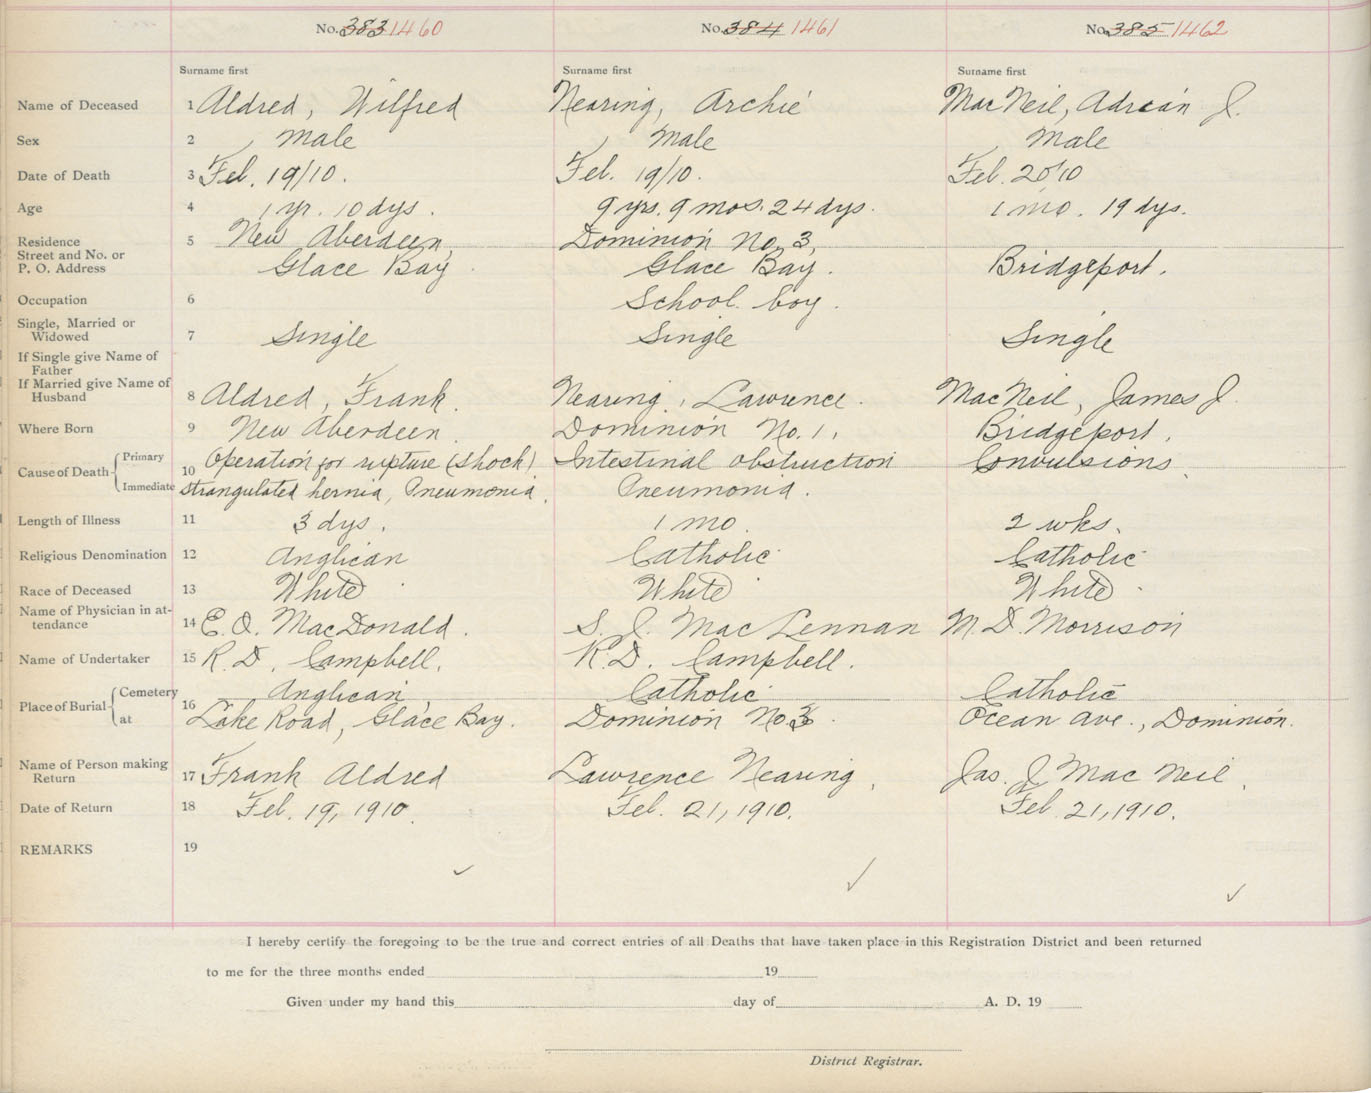 No. 383 1460 No. 384 1461 No. 385 1462
Surname first Surname first Surname first
Name of Deceased 1 Aldred, Wilfred Nearing, Archie MacNeil, Adrian J.
Sex 2 Male Male Male
Date of Death 3 Feb. 19/10. Feb. 19/10. Feb. 20/10
Age 4 1 yr. 10 dys. 9 yrs. 9 mos. 24 dys. 1 mo. 19 dys.
Residence 5 New Aberdeen, Dominion No. 3,
Street and No. or
P. O. Address Glace Bay Glace Bay. Bridgeport.
Occupation 6 School boy.
Single, Married or
Widowed 7 Single Single Single
If Single give Name of
Father
If Married give Name of
Husband 8 Aldred, Frank. Nearing, Lawrence. MacNeil, James J.
Where Born 9 New Aberdeen. Dominion No. 1, Bridgeport,
Cause of Death Primary 10 Operation for rupture (shock) Intestinal obstruction Convulsions
Immediate strangulated hernia, Pneumonia. Pneumonia.
Length of Illness 11 3 dys. 1 mo. 2 wks.
Religious Denomination 12 Anglican Catholic Catholic
Race of Deceased 13 White White White
Name of Physician in at-
tendance 14 E. O. MacDonald. S. J. MacLennan M. D. Morrison
Name of Undertaker 15 R. D. Campbell. R. D. Campbell.
Place of Burial Cemetery 16 Anglican Catholic Catholic
at Lake Road, Glace Bay. Dominion No. 3. Ocean Ave., Dominion.
Name of Person making
Return 17 Frank Aldred Lawrence Nearing, Jas. J. MacNeil,
Date of Return 18 Feb. 19, 1910. Feb. 21, 1910. Feb. 21, 1910.
REMARKS 19
I hereby certify the foregoing to be the true and correct entries of all Deaths that have taken place in this Registration District and been returned
to me for the three months ended 19
Given under my hand this day of A. D. 19
District Registrar.